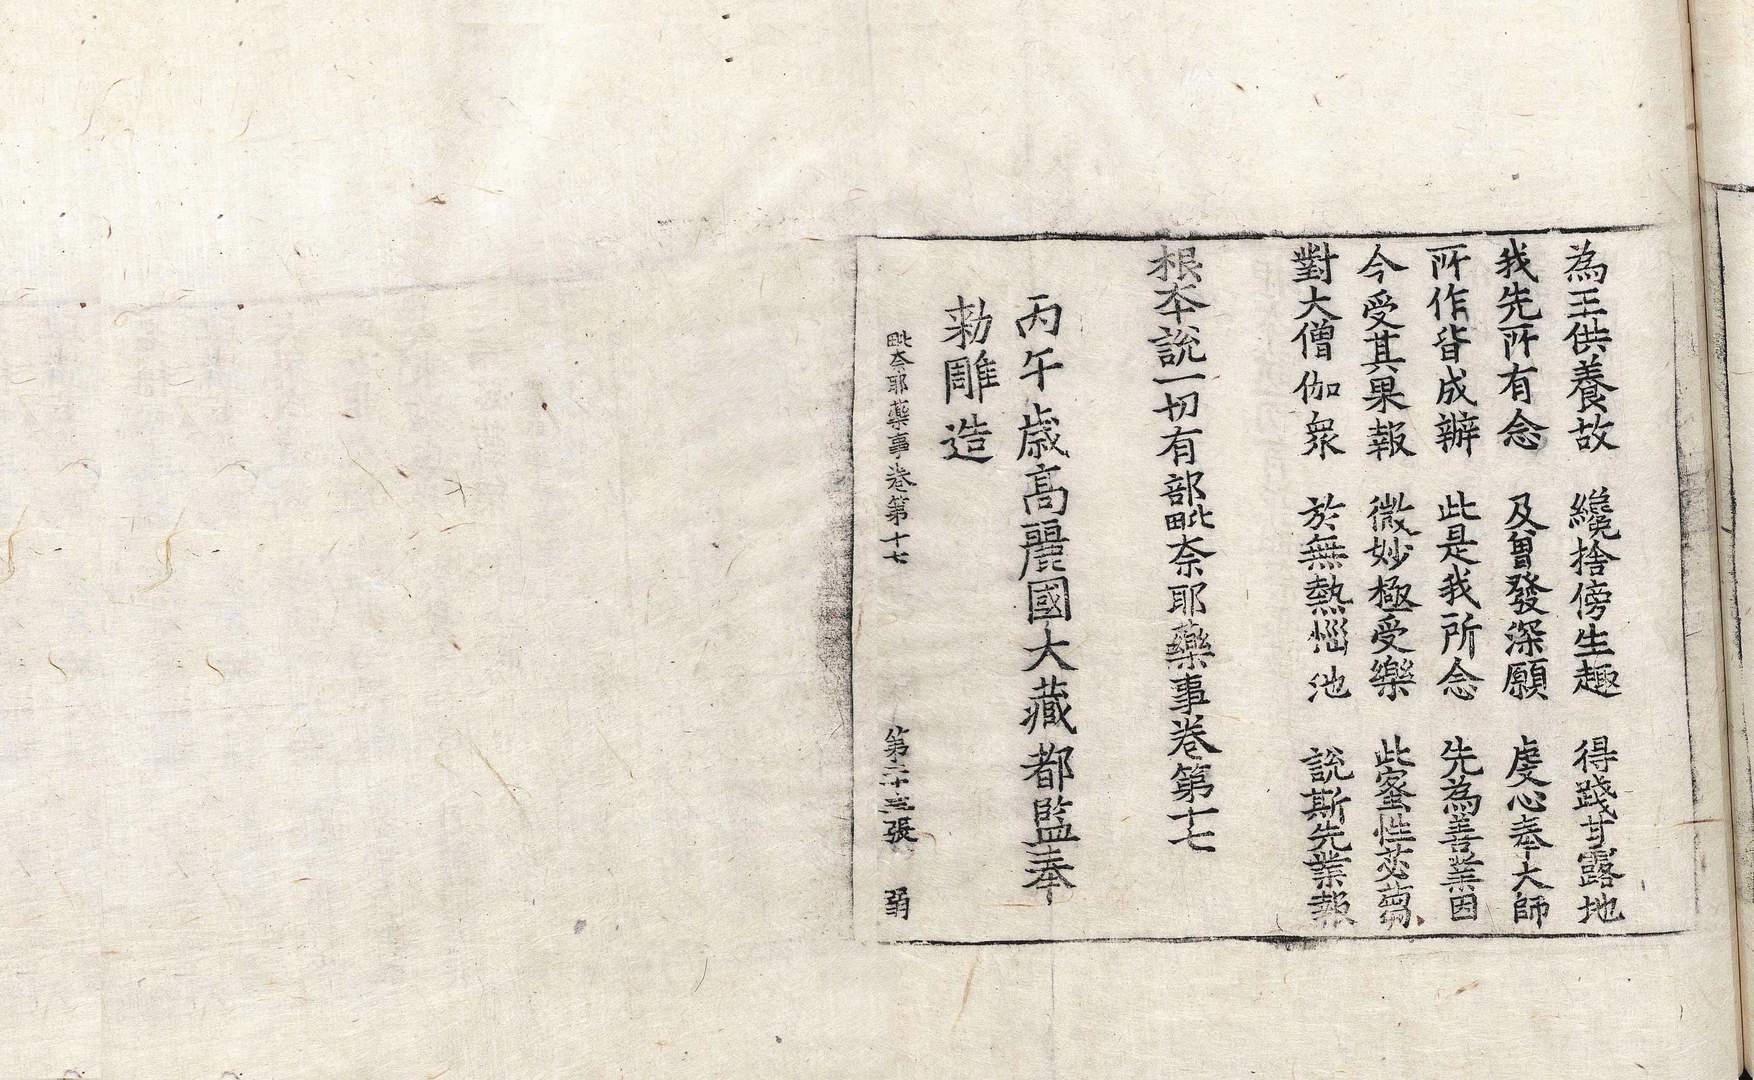 為王供養故　纔捨傍生趣　得踐甘露地
我先所有念　及曾發深願　虔心奉大師
所作皆成辦　此是我所念　先為善業因
今受其果報　微妙極受樂　此蜜性苾蒭
對大僧伽衆　於無熱惱池　說斯先業報
根本說一切有部毗奈耶藥事卷第十七
丙午歳高麗國大藏都監奉
勅雕造
毗奈耶藥事卷第十七　第二十三張　弱